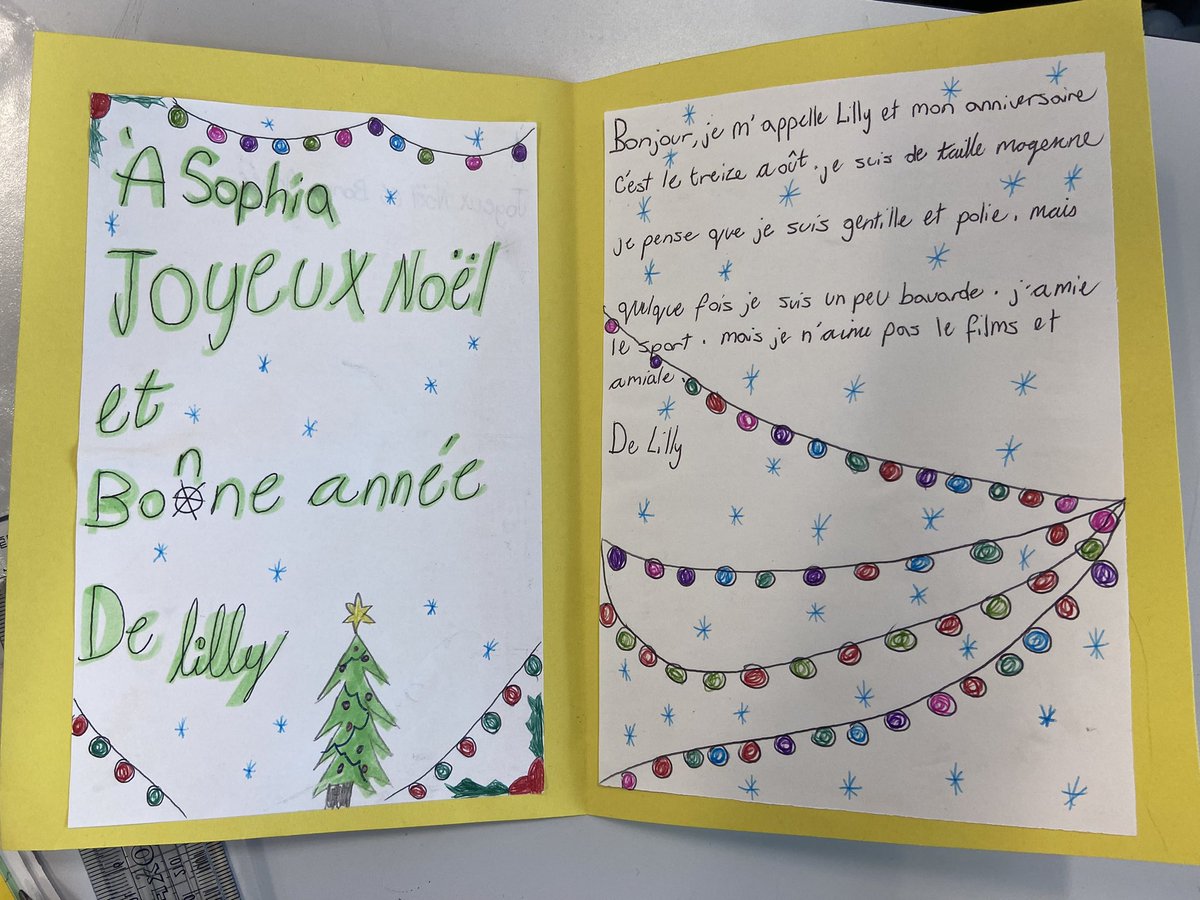 À Sophia
Joyeux Noël
et
Bonne année
De lilly
Bonjour, je m'appelle Lilly et mon anniversaire
c'est le treize août. je suis de taille mogenne
je pense que je suis gentille et polie. mais
quelque fois je suis un peu bavarde. j'amie
le sport. mais je n'aime pas le films et
amiale.
De Lilly